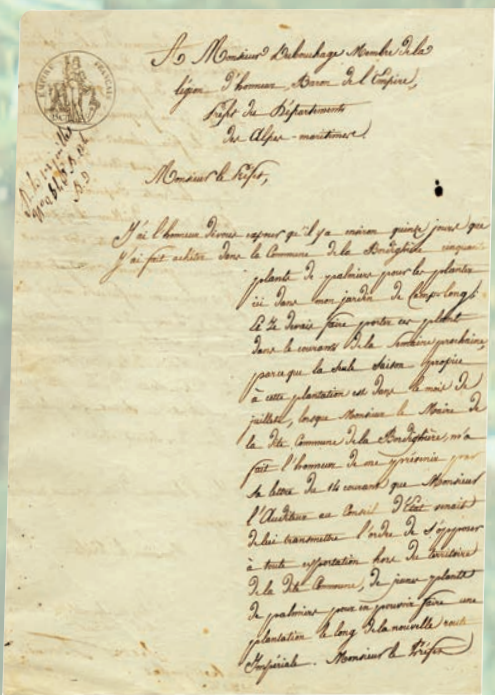 EMPIRE FRANÇAIS
A Monsieur Dubouchage Membre de la
légion d'honneur, Baron de l'Empire,
Préfet du Département
des Alpes-maritimes.
Monsieur le Préfet,
J'ai l'honneur de vous exposer qu'il y a environ quinze jours que
J'ai fait acheter dans la Commune de la Bordighère cinquante
plants de palmiers pour les planter
ici dans mon jardin de
Et Je devais faire porter ces plants
dans le courant de la Semaine prochaine,
parceque la seule Saison propice
à cette plantation est dans le mois de
juillet, lorsque Monsieur le Maire de
la dite Commune de la Bordighère, m'a
fait l'honneur de me prévenir par
sa lettre du 14 courant que Monsieur
l'Auditeur au Conseil d'Etat venait
de lui transmettre l'ordre de S'opposer
à toute exportation hors du territoire
de la dite Commune, de jeunes plants
de palmiers pour en pouvoir faire une
plantation le long de la nouvelle route
Impériale. Monsieur le Préfet